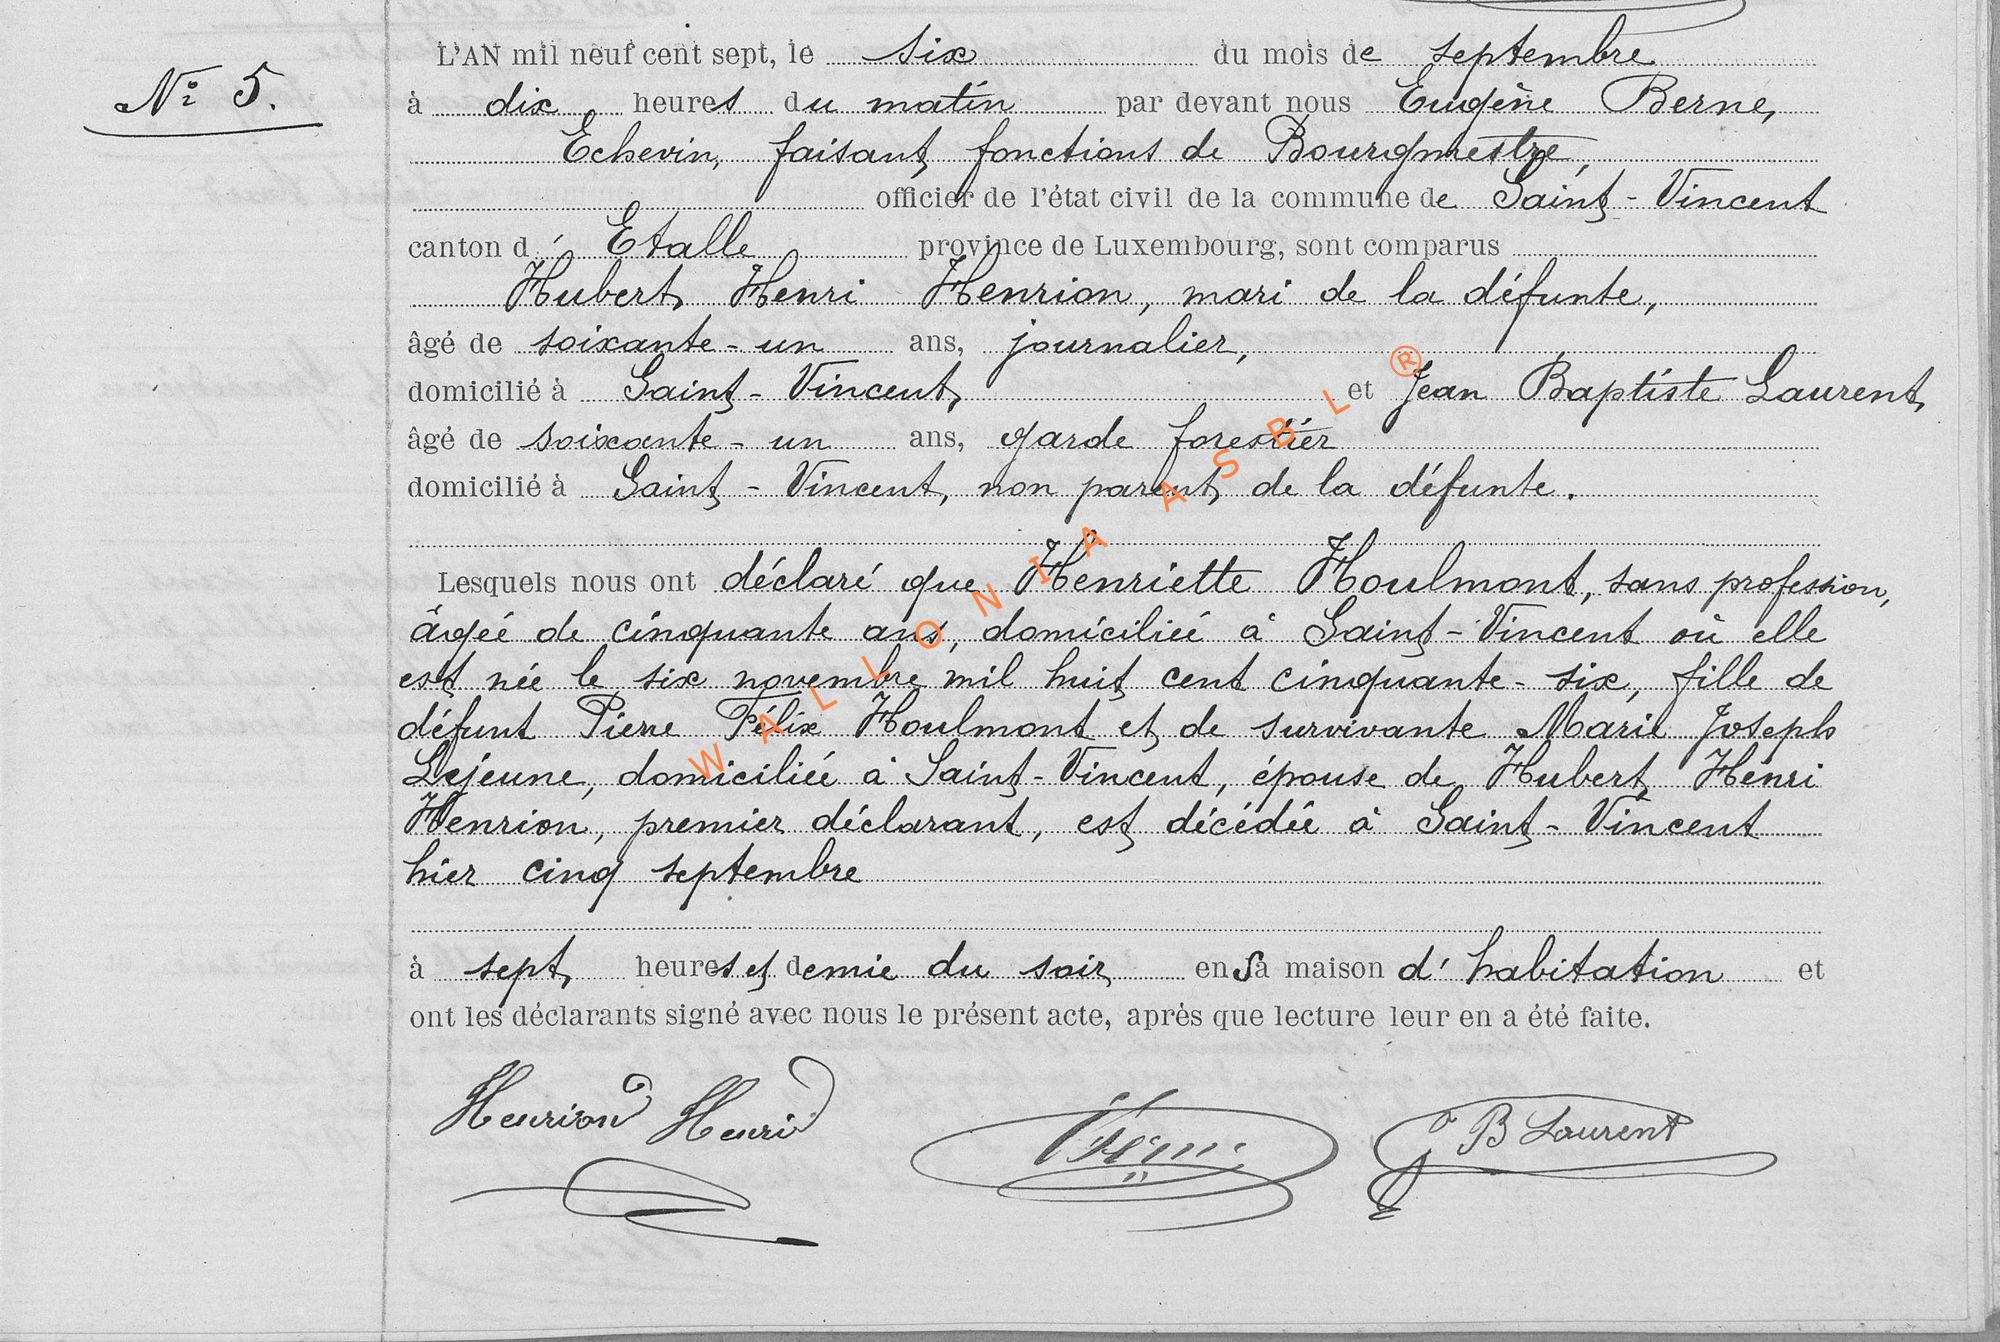 L'AN mil neuf cent sept, le six du mois de septembre
N° 5.
à dix heures du matin par devant nous Eugène Berne,
Echevin, faisant fonctions de Bourgmestre,
officier de l'état civil de la commune de Saint-Vincent
canton d'Etalle province de Luxembourg, sont comparus
Hubert Henri Henrion, mari de la défunte,
âgé de soixante-un ans, journalier,
domicilié à Saint-Vincent, et Jean Baptiste Laurent,
âgé de soixante-un ans, garde forestier
domicilié à Saint-Vincent, non parent de la défunte.
Lesquels nous ont déclaré que Henriette Houlmont, sans profession,
âgée de cinquante ans, domiciliée à Saint-Vincent où elle
est née le six novembre mil huit cent cinquante-six, fille de
défunt Pierre Félix Houlmont et de survivante Marie Joseph
Lejeune, domiciliée à Saint-Vincent, épouse de Hubert Henri
Henrion, premier déclarant, est décédée à Saint-Vincent
hier cinq septembre
à sept heures et demie du soir en sa maison d'habitation et
ont les déclarants signé avec nous le présent acte, après que lecture leur en a été faite.
Henrion Henri
J B Laurent
WALLONIA ASBL ®